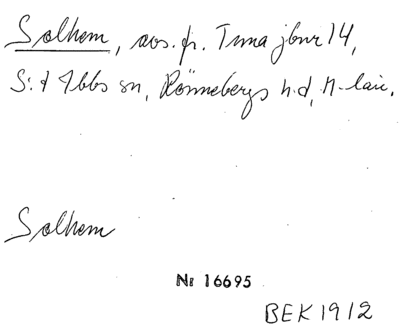 Solhem, avs. fr. Tuna jbnr 14,
S:t Ibbs sn, Rönnebergs h.d, M-län.
Solhem
Nr 16695
BEK 1912